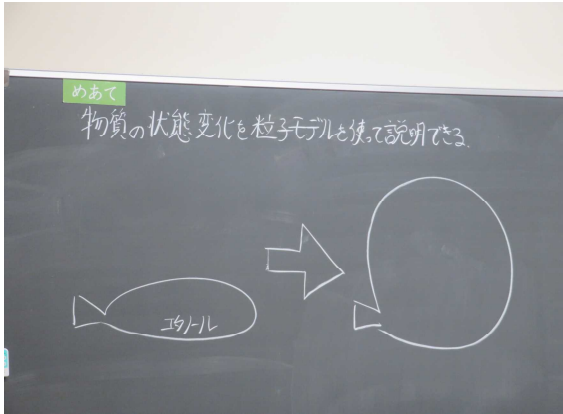 めあて
物質の状態変化を粒子モデルを使って説明できる.
エタノール